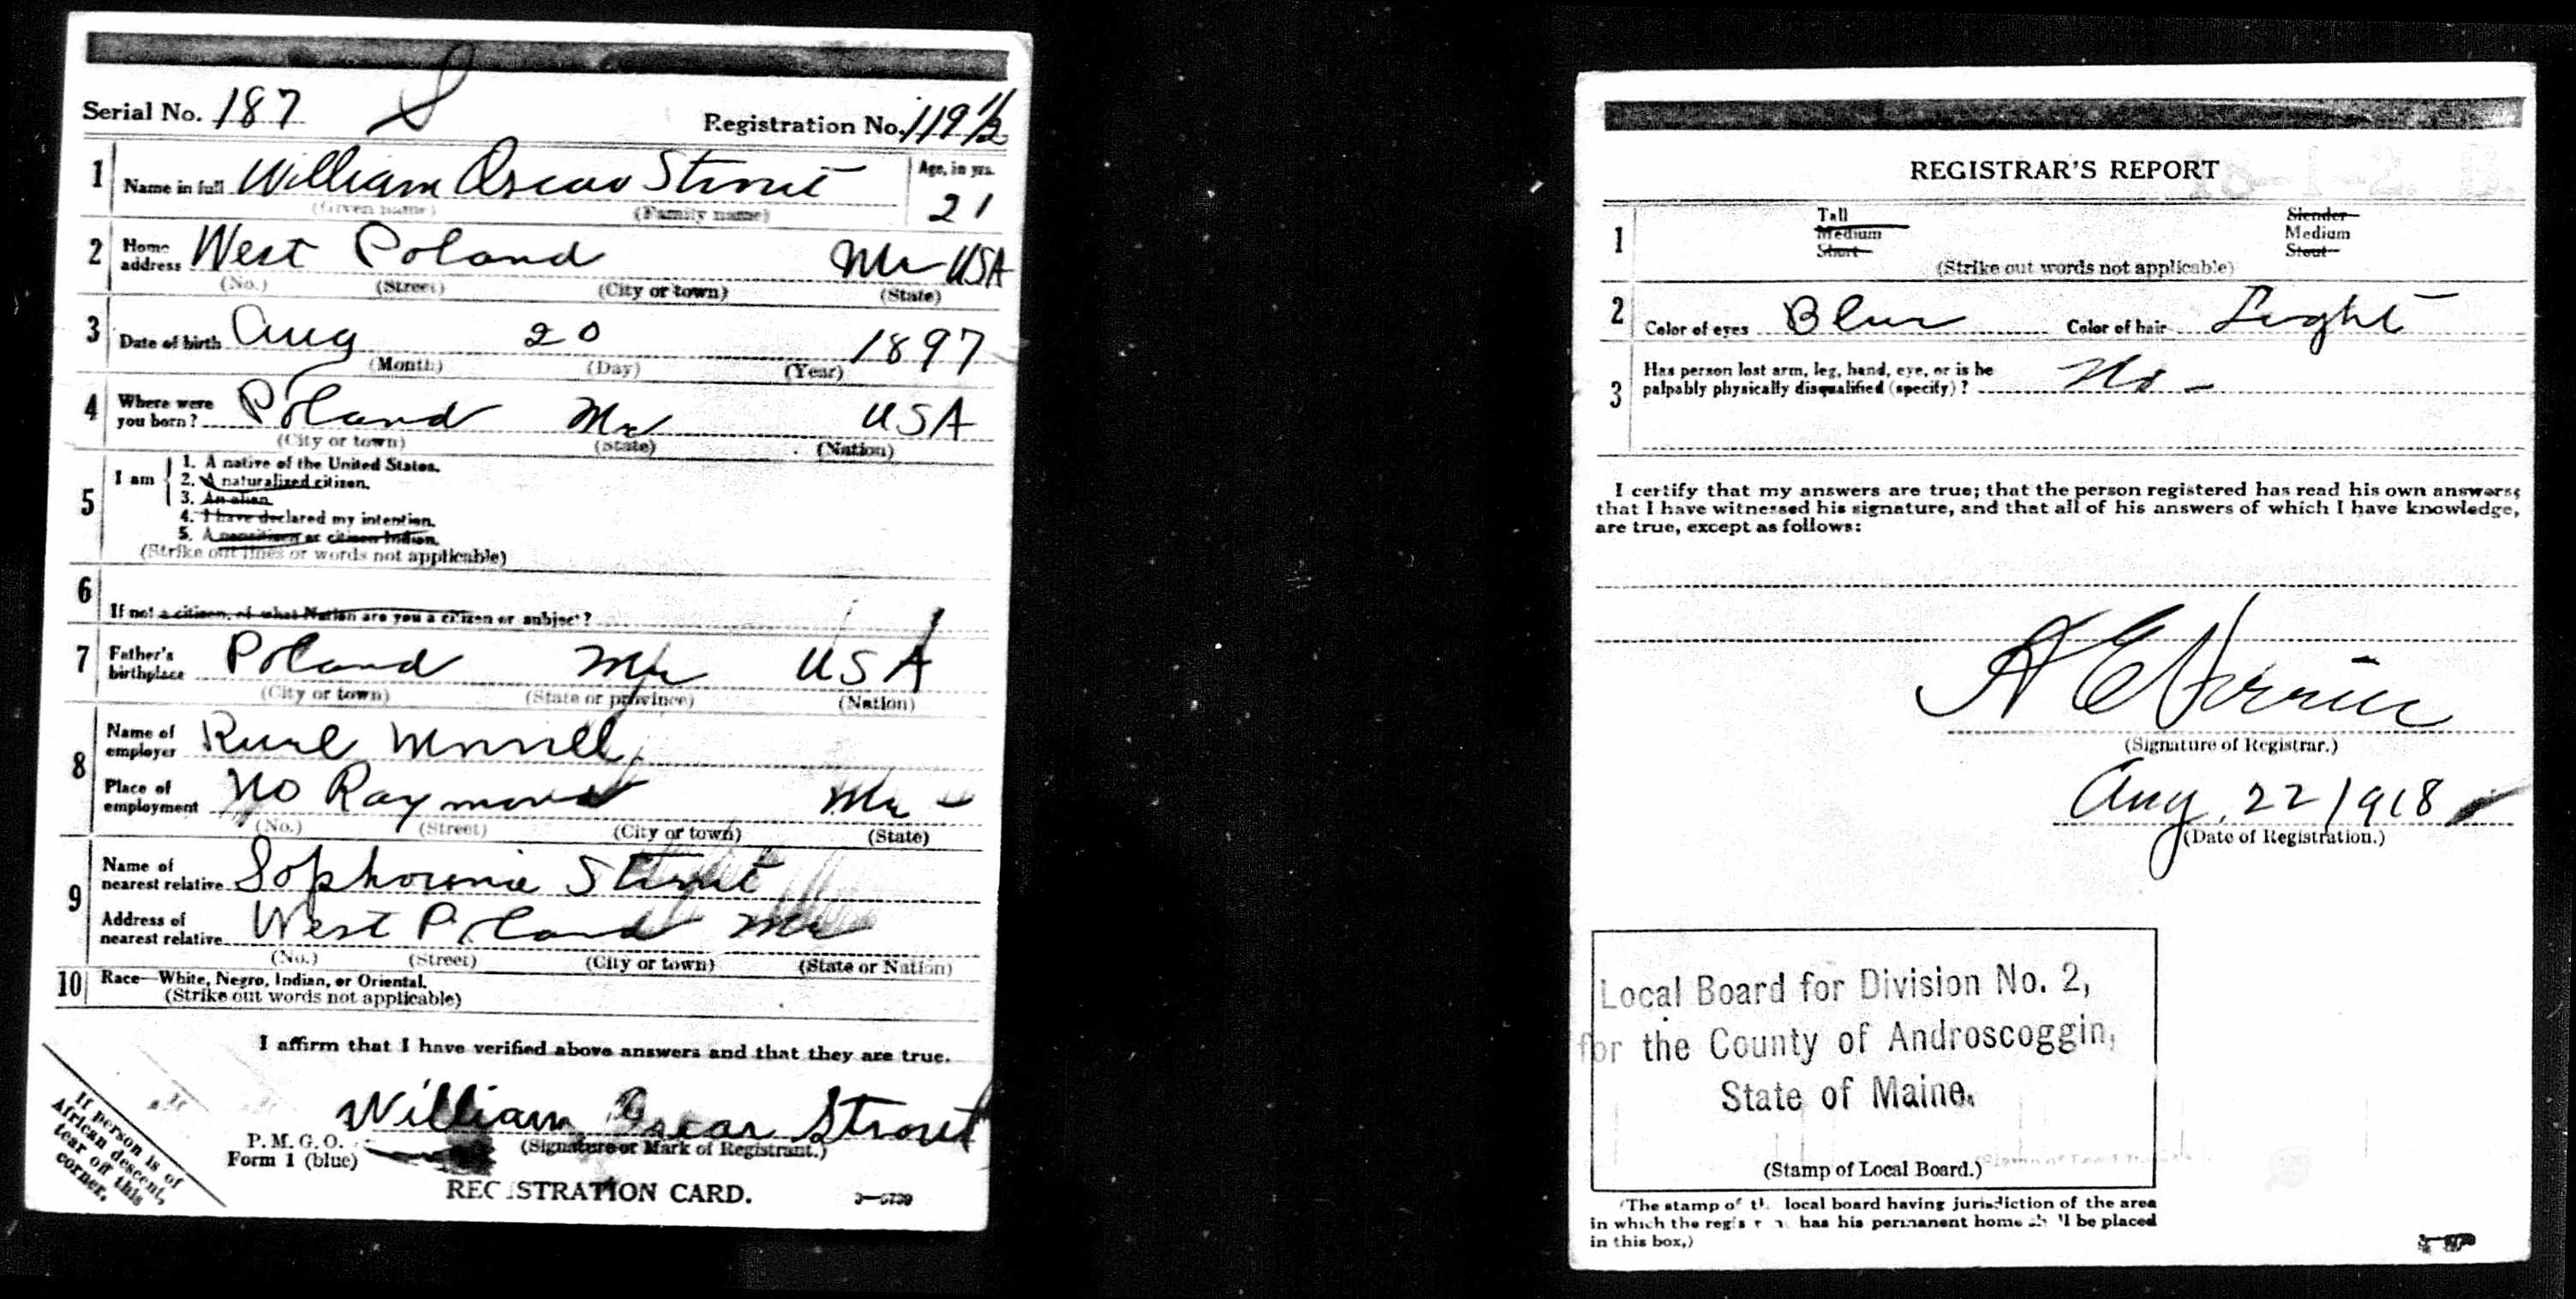 Serial No. 187 Registration No. 119 1/2
1 Name in full William Oscar Strout Age, in yrs. 21
(Given name) (Family name)
2 Home address West Poland Me USA
(No.) (Street) (City or town) (State)
3 Date of birth Aug 20 1897
(Month) (Day) (Year)
4 Where were you born? Poland Me USA
(City or town) (State) (Nation)
5 I am
1. A native of the United States.
2. A naturalized citizen.
3. An alien.
4. I have declared my intention.
5. A noncitizen or citizen Indian.
(Strike out lines or words not applicable)
6 If not a citizen, of what Nation are you a citizen or subject?
7 Father's birthplace Poland Me USA
(City or town) (State or province) (Nation)
8 Name of employer
Place of employment No Raymond Me
(No.) (Street) (City or town) (State)
9 Name of nearest relative Sophronia Strout
Address of nearest relative West Poland Me
(No.) (Street) (City or town) (State or Nation)
10 Race—White, Negro, Indian, or Oriental.
(Strike out words not applicable)
I affirm that I have verified above answers and that they are true.
William Oscar Strout
P. M. G. O. (Signature or Mark of Registrant.)
Form 1 (blue)
REGISTRATION CARD.
If person is of
African descent,
tear off this
corner.
REGISTRAR'S REPORT
1 Tall Slender
Medium Medium
Short Stout
(Strike out words not applicable)
2 Color of eyes Blue Color of hair Light
3 Has person lost arm, leg, hand, eye, or is he
palpably physically disqualified (specify)? No
I certify that my answers are true; that the person registered has read his own answers;
that I have witnessed his signature, and that all of his answers of which I have knowledge,
are true, except as follows:
(Signature of Registrar.)
Aug. 22 1918
(Date of Registration.)
Local Board for Division No. 2,
for the County of Androscoggin,
State of Maine.
(Stamp of Local Board.)
(The stamp of the local board having jurisdiction of the area
in which the registrant has his permanent home shall be placed
in this box.)